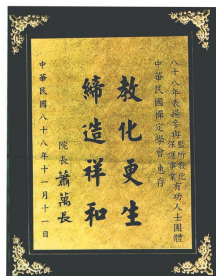 八十八年表揚參與監所教化
保護事業有功人士團體
中華民國禪定學會惠存
教化更生
締造祥和
院長蕭萬長
中華民國八十八年十一月十一日